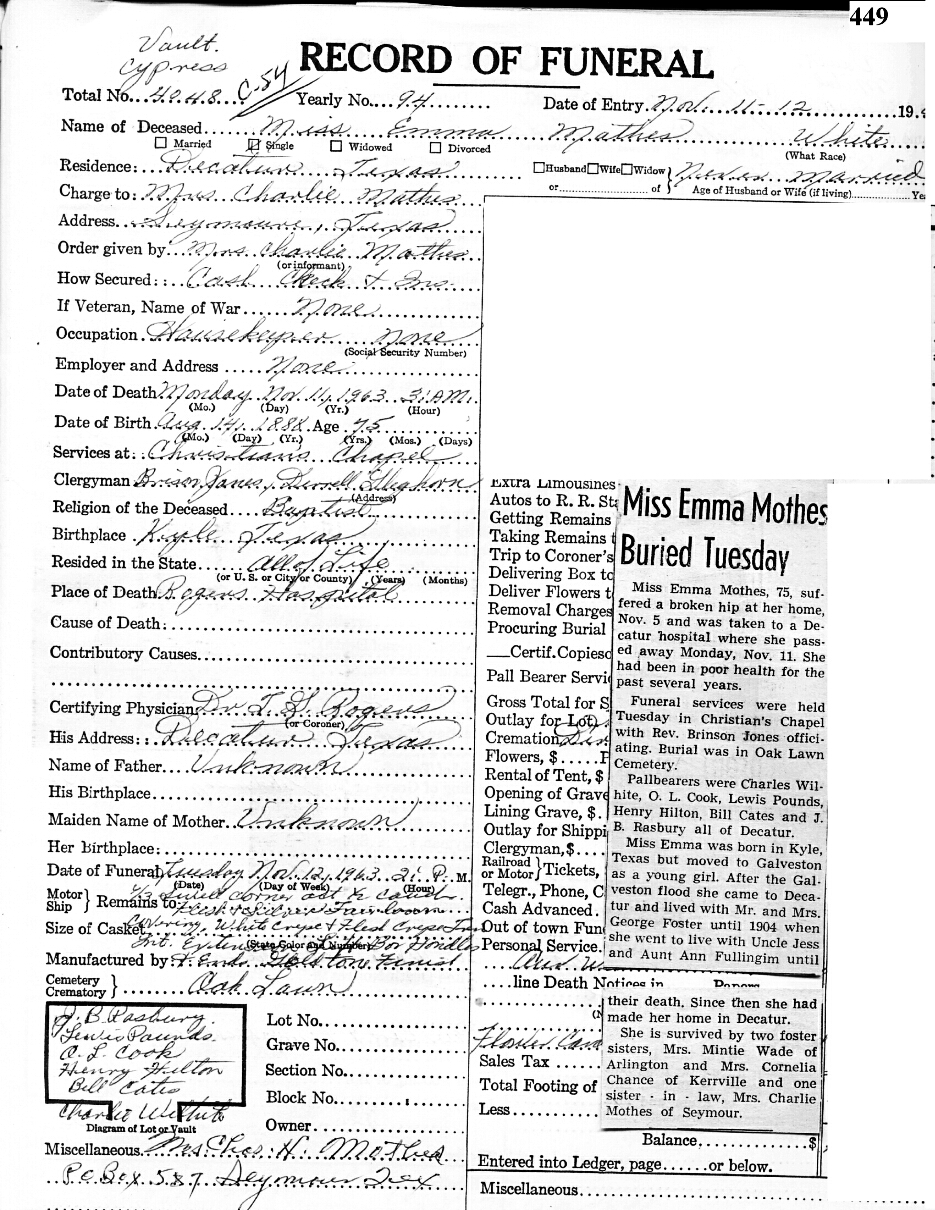 449
Vault.
Cypress
RECORD OF FUNERAL
C.54
Total No. 4048 Yearly No. 94 Date of Entry Nov. 11-12 19
Name of Deceased Miss Emma Mathes White
Married Single Widowed Divorced (What Race)
Residence: Decatur Texas Husband Wife Widow Never Married
or of Age of Husband or Wife (if living)
Charge to: Mrs. Charlie Mathes
Address Seymour, Texas
Order given by Mrs. Charlie Mathes
(or informant)
How Secured: Cash Check + Ins.
If Veteran, Name of War None
Occupation Housekeeper None
(Social Security Number)
Employer and Address None
Date of Death Monday Nov. 11, 1963 3: A.M.
(Mo.) (Day) (Yr.) (Hour)
Date of Birth Aug. 14, 1888 Age 75
(Mo.) (Day) (Yr.) (Yrs.) (Mos.) (Days)
Services at: Christians Chapel
Clergyman Brinson Jones,
(Address)
Religion of the Deceased Baptist
Birthplace Kyle Texas
Resided in the State All of Life
(or U. S. or City or County) (Years) (Months)
Place of Death Rogers Hospital
Cause of Death:
Contributory Causes
Certifying Physician Dr. T. G. Rogers
(or Coroner)
His Address: Decatur Texas
Name of Father Unknown
His Birthplace
Maiden Name of Mother Unknown
Her Birthplace:
Date of Funeral Tuesday Nov. 12, 1963 2: P. M.
(Date) (Day of Week) (Hour)
Motor Ship } Remains to
Size of Casket
(State Color and Number)
Manufactured by
Cemetery Crematory } Oak Lawn
J. B. Rasbury
Lewis Pounds
O. L. Cook
Henry Hilton
Bill Cates
Charlie Wilhite
Diagram of Lot or Vault
Lot No.
Grave No.
Section No.
Block No.
Owner
Miscellaneous Mrs. Chas. H. Mothes
P.O. Box 587 Seymour Tex
Extra Limousines
Autos to R. R. St
Getting Remains
Taking Remains t
Trip to Coroner's
Delivering Box to
Deliver Flowers t
Removal Charges
Procuring Burial
Certif. Copies
Pall Bearer Servi
Gross Total for S
Outlay for Lot
Cremation
Flowers, $ F
Rental of Tent, $
Opening of Grave
Lining Grave, $
Outlay for Shippi
Clergyman, $
Railroad or Motor } Tickets,
Telegr., Phone, C
Cash Advanced
Out of town Fun
Personal Service
line Death Notices in Papers
Sales Tax
Total Footing of
Less
Balance $
Entered into Ledger, page or below.
Miscellaneous
Miss Emma Mothes
Buried Tuesday
Miss Emma Mothes, 75, suf-
fered a broken hip at her home,
Nov. 5 and was taken to a De-
catur hospital where she pass-
ed away Monday, Nov. 11. She
had been in poor health for the
past several years.
Funeral services were held
Tuesday in Christian's Chapel
with Rev. Brinson Jones offici-
ating. Burial was in Oak Lawn
Cemetery.
Pallbearers were Charles Wil-
hite, O. L. Cook, Lewis Pounds,
Henry Hilton, Bill Cates and J.
B. Rasbury all of Decatur.
Miss Emma was born in Kyle,
Texas but moved to Galveston
as a young girl. After the Gal-
veston flood she came to Deca-
tur and lived with Mr. and Mrs.
George Foster until 1904 when
she went to live with Uncle Jess
and Aunt Ann Fullingim until
their death. Since then she had
made her home in Decatur.
She is survived by two foster
sisters, Mrs. Mintie Wade of
Arlington and Mrs. Cornelia
Chance of Kerrville and one
sister - in - law, Mrs. Charlie
Mothes of Seymour.